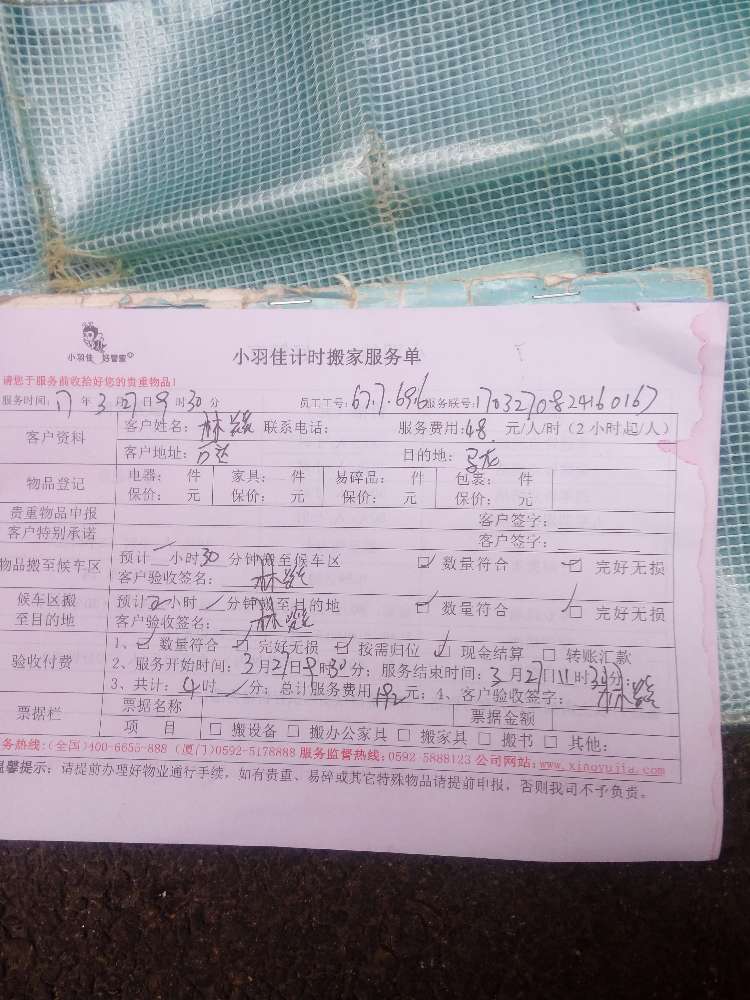 小羽佳 好管蜜
小羽佳计时搬家服务单
请您于服务前收拾好您的贵重物品!
服务时间: 17 年 3 月 27 日 9 时 30 分 员工工号: 67.7.696 服务联号: 1703270824160167
客户资料
客户姓名: 林 联系电话: 服务费用: 48. 元/人/时(2小时起/人)
客户地址: 目的地:
物品登记
电器: 件 家具: 件 易碎品: 件 包装: 件
保价: 元 保价: 元 保价: 元 保价: 元
贵重物品申报 客户签字:
客户特别承诺 客户签字:
物品搬至候车区
预计 小时 30 分钟搬至候车区 数量符合 完好无损
客户验收签名: 林
候车区搬至目的地
预计 2 小时 / 分钟搬至目的地 数量符合 完好无损
客户验收签名: 林
验收付费
1、 数量符合 完好无损 按需归位 现金结算 转账汇款
2、服务开始时间: 3 月 27 日 9 时 30 分; 服务结束时间: 3 月 27 日 11 时 30 分;
3、共计: 4 时 / 分; 总计服务费用 192 元; 4、客户验收签字: 林
票据栏
票据名称 票据金额
项 目 搬设备 搬办公家具 搬家具 搬书 其他:
务热线:(全国)400-6655-888 (厦门)0592-5178888 服务监督热线:0592-5888123 公司网站:www.xiaoyujia.com
温馨提示: 请提前办理好物业通行手续, 如有贵重、易碎或其它特殊物品请提前申报, 否则我司不予负责。